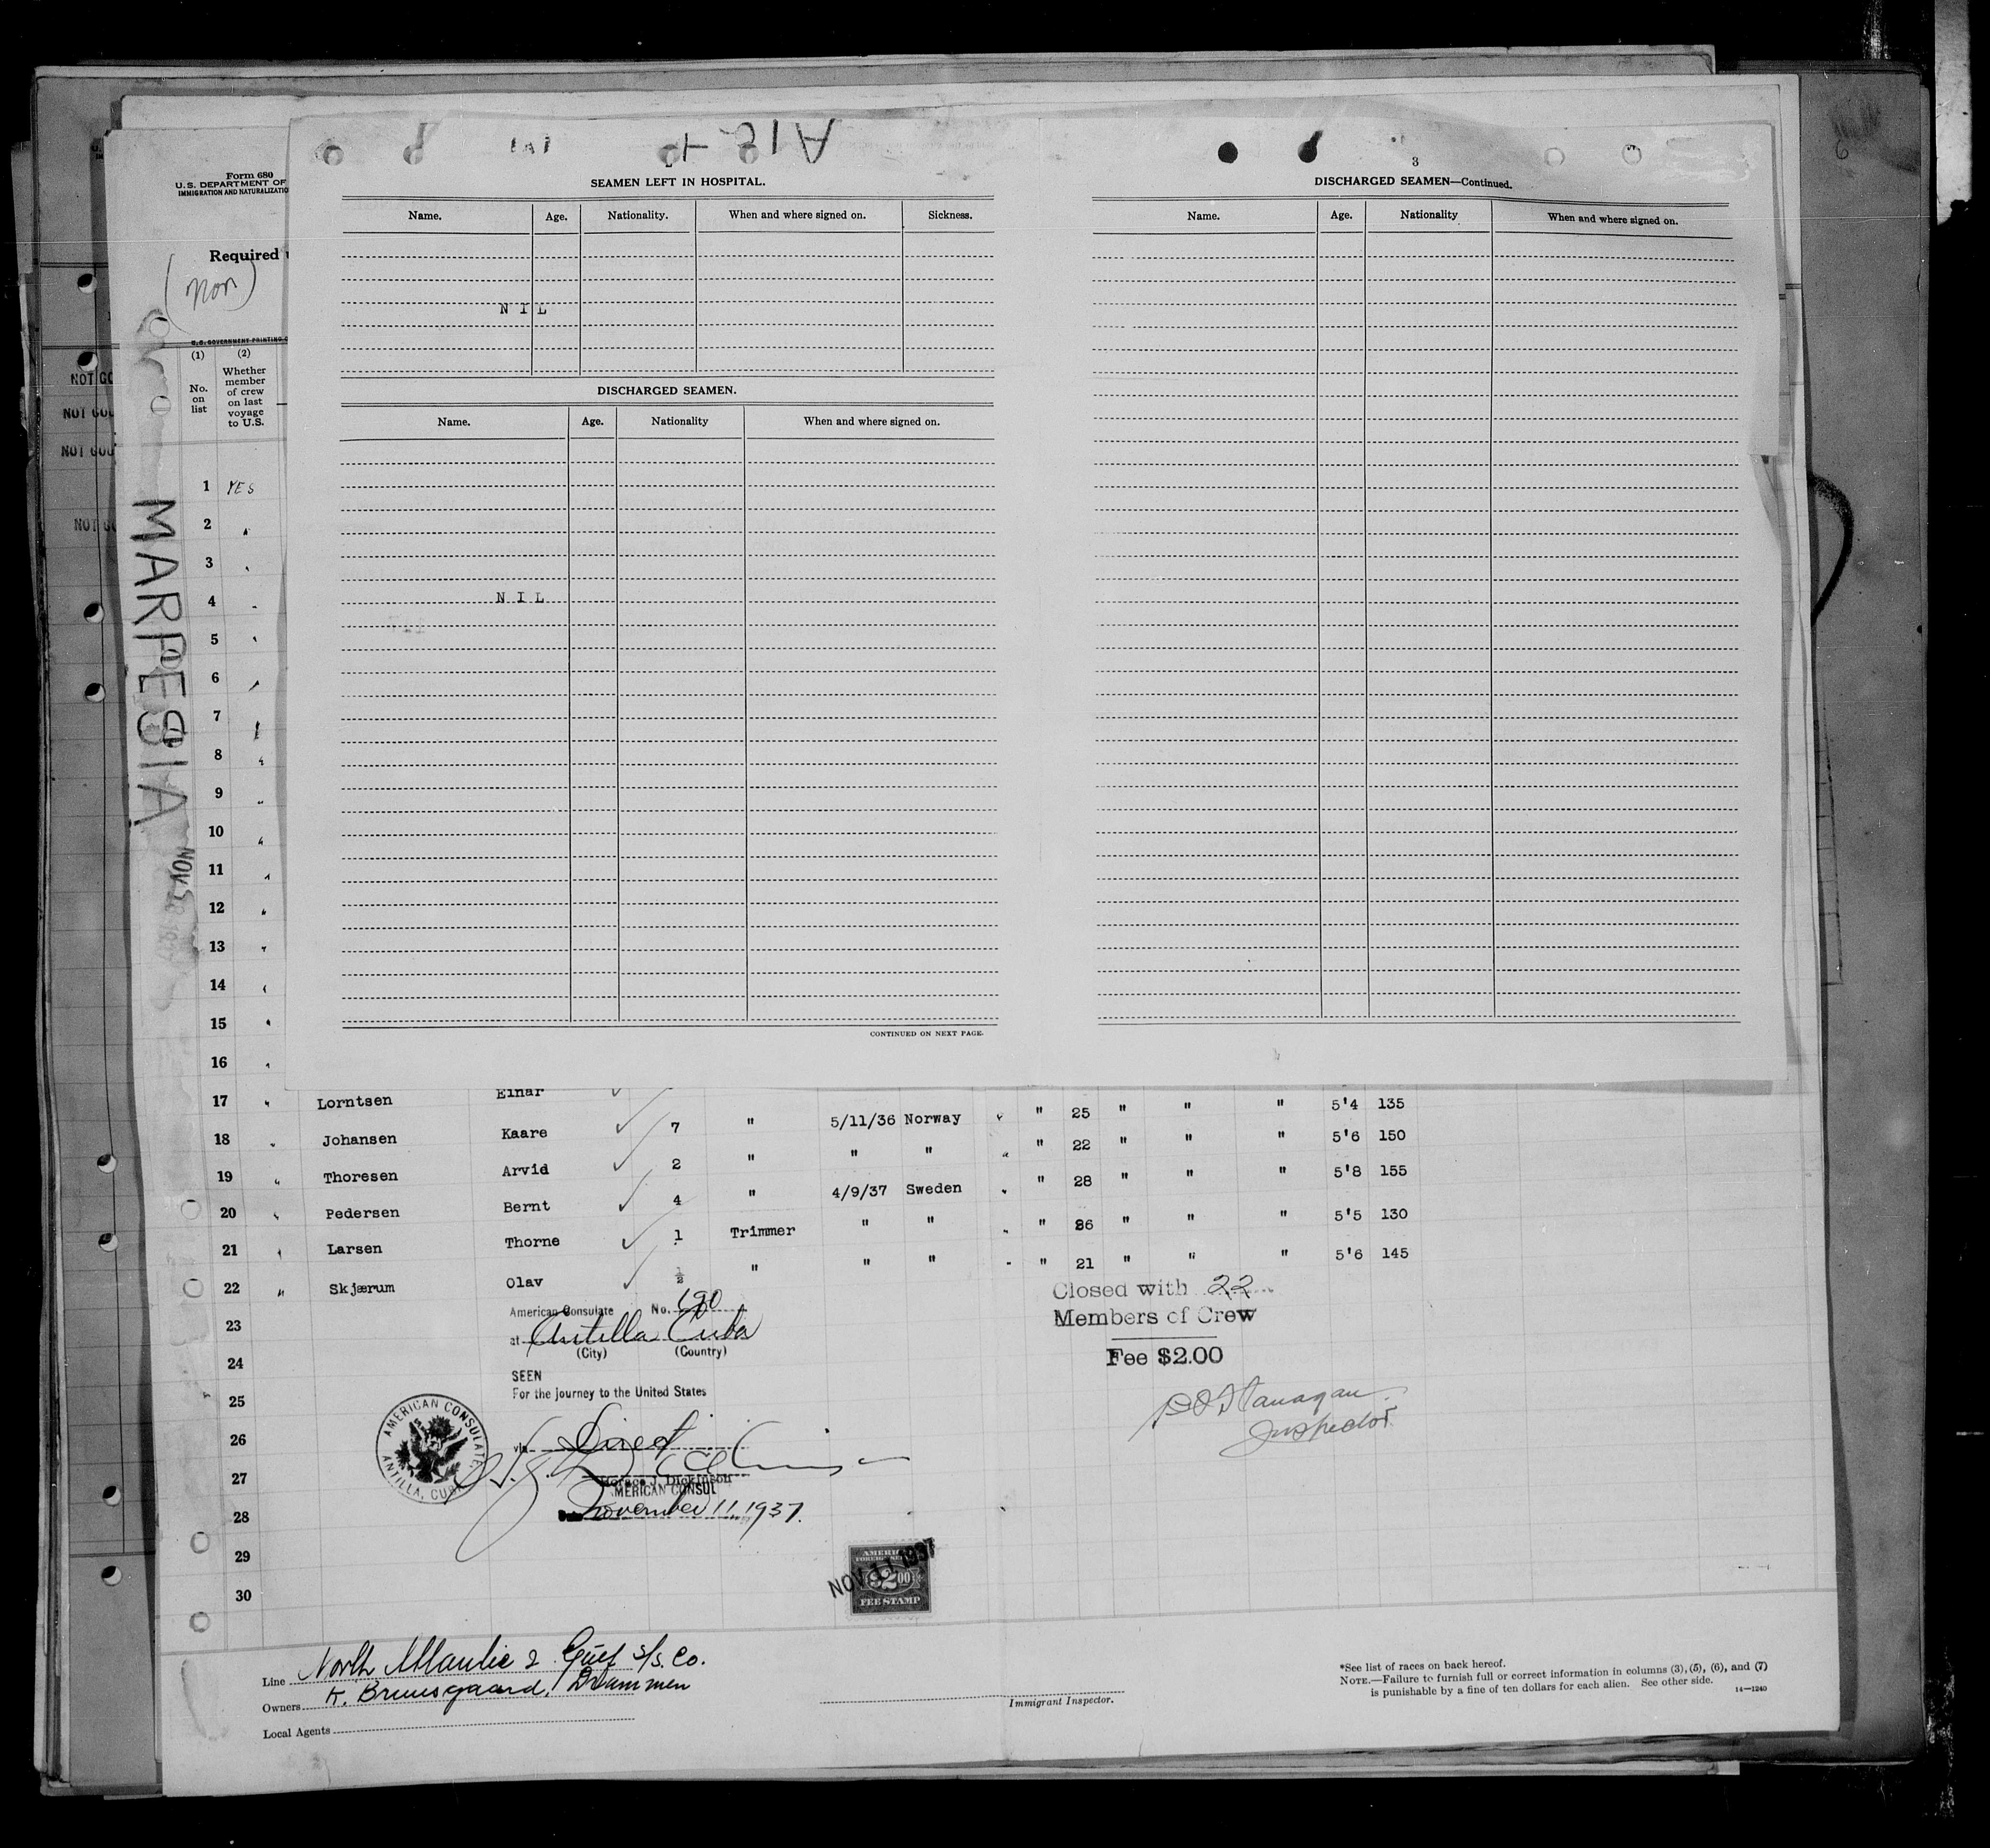 Form 680
U.S. DEPARTMENT OF
IMMIGRATION AND NATURALIZATIO
Required
(Nor)
U.S. GOVERNMENT PRINTING
(1) (2)
No. on list
Whether member of crew on last voyage to U.S.
NOT GO
NOT GOO
NOT GOO
NOT GO
MARPESIA
NOV
SEAMEN LEFT IN HOSPITAL.
Name. Age. Nationality. When and where signed on. Sickness.
NIL
DISCHARGED SEAMEN.
Name. Age. Nationality When and where signed on.
NIL
CONTINUED ON NEXT PAGE.
3
DISCHARGED SEAMEN—Continued.
Name. Age. Nationality When and where signed on.
1 YES
2 "
3 "
4 "
5 "
6 "
7 "
8 "
9 "
10 "
11 "
12 "
13 "
14 "
15 "
16 "
17 " Lorntsen Einar ✓
18 " Johansen Kaare ✓ 7 " 5/11/36 Norway " " 25 " " " 5'4 135
19 " Thoresen Arvid ✓ 2 " " " " " 22 " " " 5'6 150
20 " Pedersen Bernt ✓ 4 " 4/9/37 Sweden " " 28 " " " 5'8 155
21 " Larsen Thorne ✓ 1 Trimmer " " " " 26 " " " 5'5 130
22 " Skjærum Olav ✓ ½ " " " " " 21 " " " 5'6 145
23
24
25
26
27
28
29
30
American Consulate No. 190
at Antilla Cuba
(City) (Country)
SEEN
For the journey to the United States
via Direct
Horace J. Dickinson
AMERICAN CONSUL
November 11, 1937.
AMERICAN CONSULATE
ANTILLA, CUBA
Closed with 22
Members of Crew
Fee $2.00
Flanagan
Inspector
NOV 11 1937
AMERICAN
FOREIGN SERVICE
$2.00
FEE STAMP
Line North Atlantic & Gulf S/S. Co.
Owners K. Bruusgaard, Drammen
Local Agents
Immigrant Inspector.
*See list of races on back hereof.
NOTE.—Failure to furnish full or correct information in columns (3), (5), (6), and (7)
is punishable by a fine of ten dollars for each alien. See other side. 14—1240